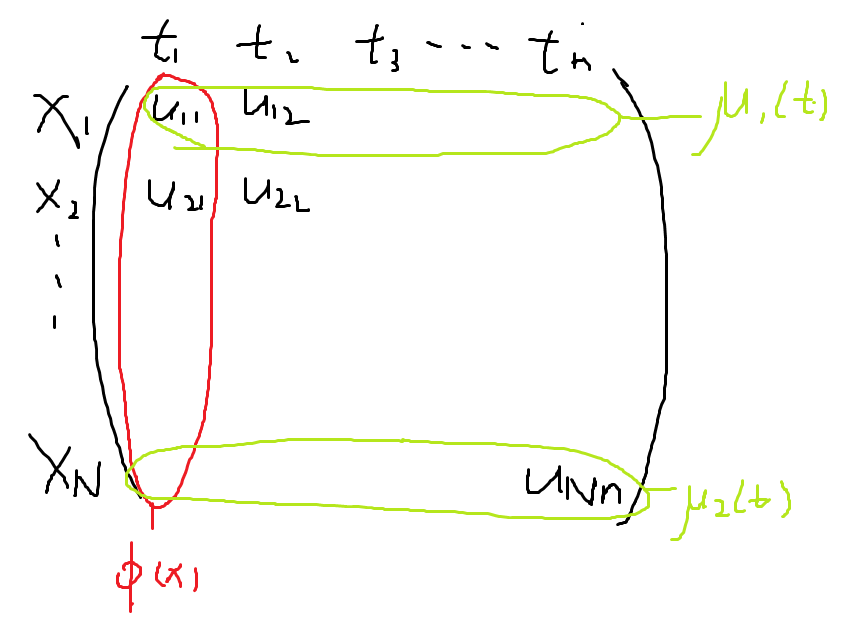 t₁ t₂ t₃ --- tₙ
x₁ u₁₁ u₁₂ μ₁(t)
x₂ u₂₁ u₂₂
x_N u_Nn μ₂(t)
φ(x)